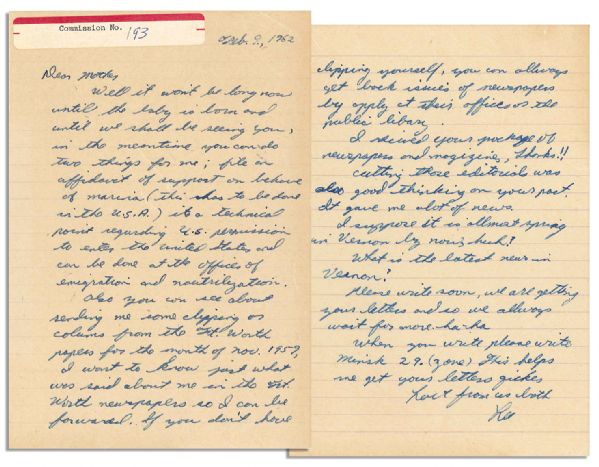 Commission No. 193
Feb. 9, 1962
Dear Mother
Well it won't be long now
until the baby is born and
until we shall be seeing you,
in the meantime you can do
two things for me; file an
affidavit of support on behave
of marina (this has to be done
in the U.S.A.) its a technical
point regarding U.S. permission
to enter the United States and
can be done at the offices of
emigration and nautrilization.
Also you can see about
sending me some clipping or
columns from the Ft. Worth
papers for the month of Nov. 1959,
I want to know just what
was said about me in the Ft.
Worth newspapers so I can be
forwarned. If you don't have
clipping yourself, you can allways
get back issues of newspapers
by apply at their offices or the
public libary.
I reived your package of
newspapers and magizines, thanks!!
cutting those editorials was
good thinking on your part.
It gave me alot of news.
I suppose it is allmost spring
in Vernon by now, huh?
What is the latest news in
Vernon?
Please write soon, we are getting
your letters and so we allways
wait for more. ha-ha
When you write please write
Minsk 29. (zone) This helps
me get your letters
from us both
Lee